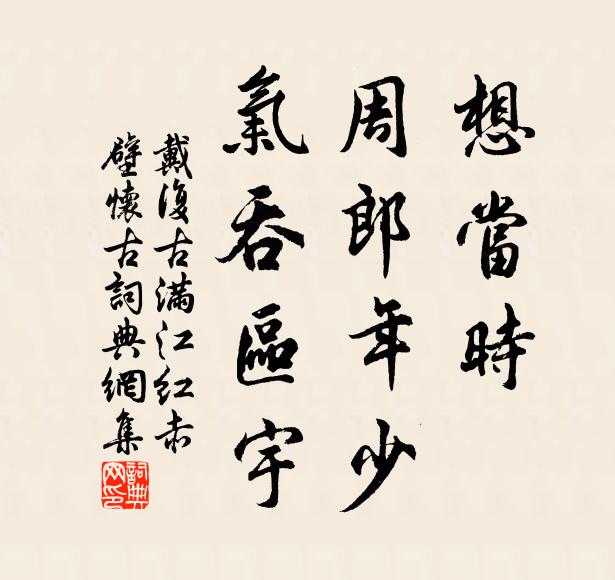 想當時
周郎年少
氣吞區宇
戴復古滿江紅赤
壁懷古詞典網集
詞典网印